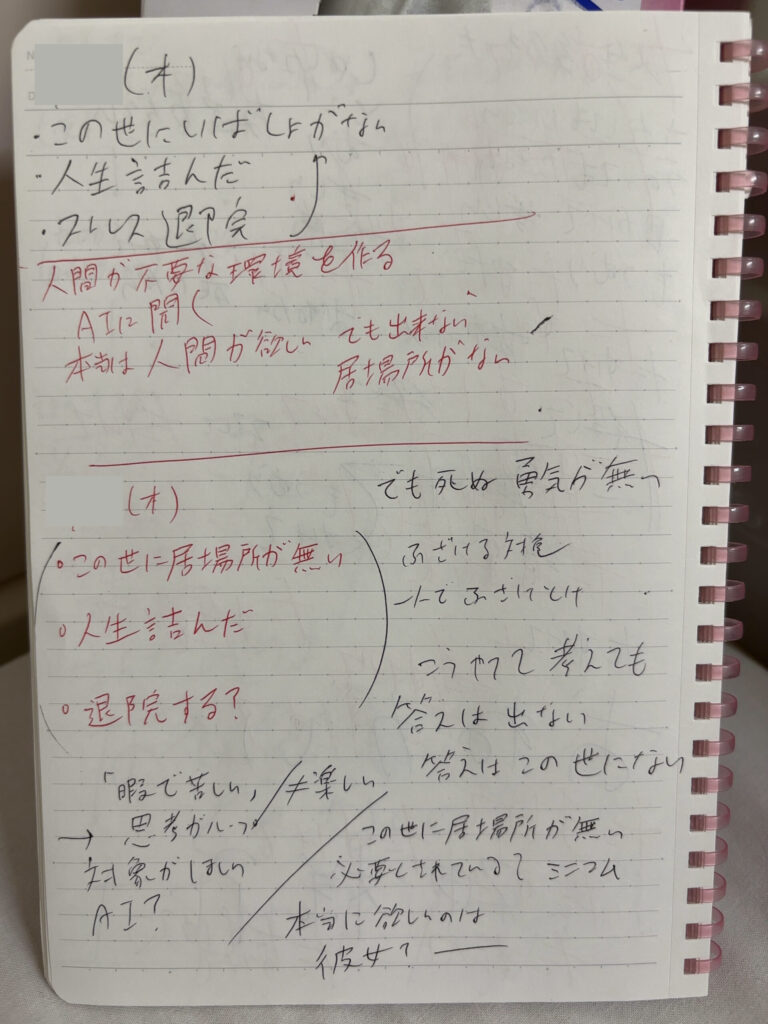 (木)
・この世にいばしょがない
・人生詰んだ
・ストレス 退院
人間が不要な環境を作る
AIに聞く
本当は人間が欲しい でも出来ない
居場所がない
(木)
でも死ぬ勇気が無い
・この世に居場所が無い
・人生詰んだ
・退院する?
ふざける対象
一人でふざけとけ
こうやって考えても
答えは出ない
答えはこの世にない
「暇で苦しい」≠楽しい
→ 思考がループ
対象がほしい
AI?
この世に居場所が無い
必要とされている?
本当に欲しいのは
彼女?